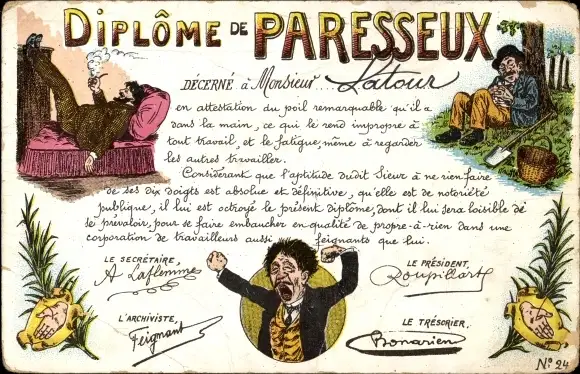 DIPLÔME DE PARESSEUX
DÉCERNÉ à Monsieur Latour
en attestation du poil remarquable qu'il a
dans la main, ce qui le rend impropre à
tout travail, et le fatigue, même à regarder
les autres travailler.
Considérant que l'aptitude dudit Sieur à ne rien faire
de ses dix doigts est absolue et définitive, qu'elle est de notoriété
publique, il lui est octroyé le présent diplôme, dont il lui sera loisible de
se prévaloir, pour se faire embaucher en qualité de propre-à-rien dans une
corporation de travailleurs aussi feignants que lui.
LE SECRÉTAIRE,
A Laflemme
LE PRÉSIDENT,
Roupillard
L'ARCHIVISTE,
Feignant
LE TRÉSORIER.
Bonarien
No. 24